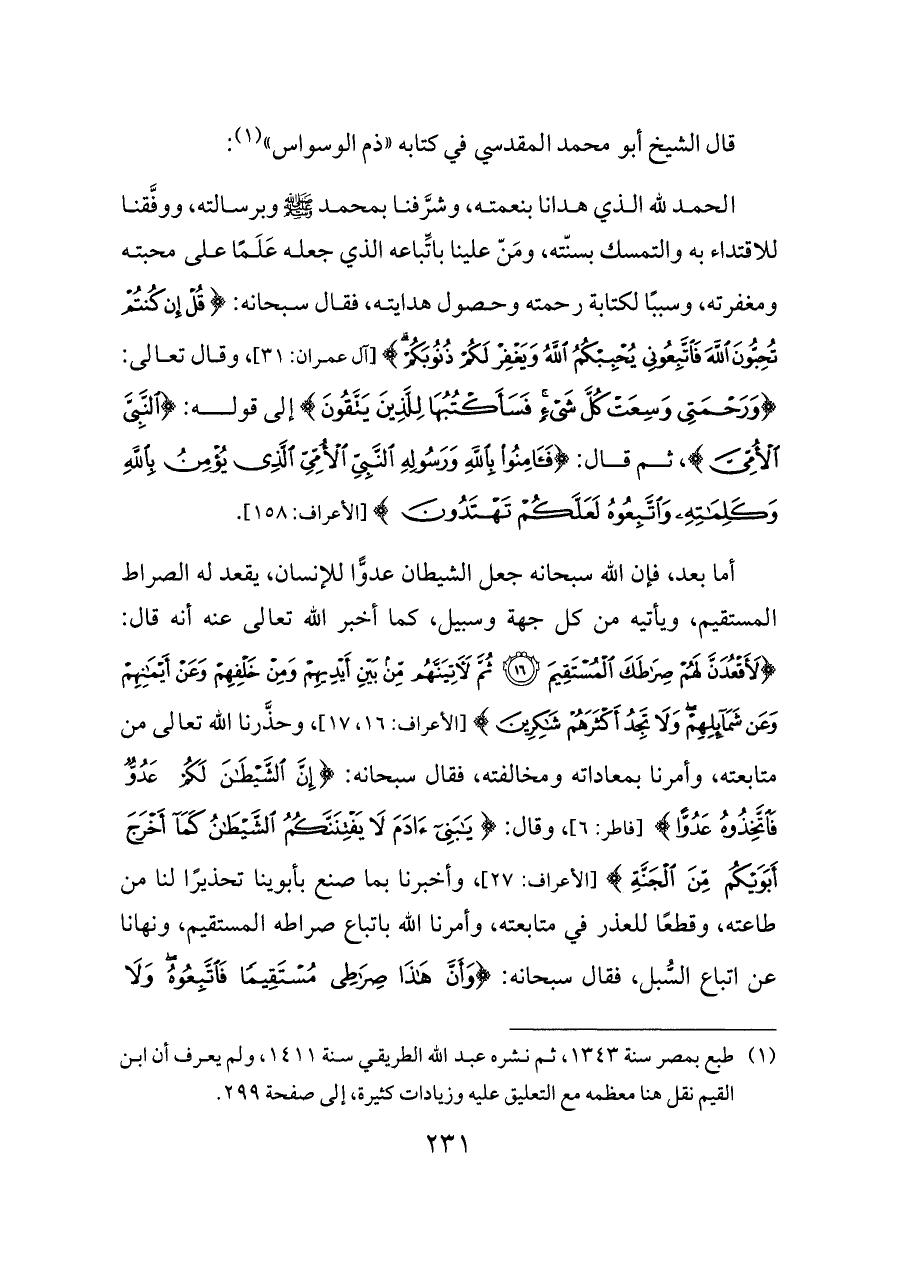 قال الشيخ أبو محمد المقدسي في كتابه «ذم الوسواس»(١):
الحمد لله الذي هدانا بنعمته، وشرَّفنا بمحمد ﷺ وبرسالته، ووفَّقنا
للاقتداء به والتمسك بسنّته، ومَنّ علينا باتِّباعه الذي جعله عَلَمًا على محبته
ومغفرته، وسببًا لكتابة رحمته وحصول هدايته، فقال سبحانه: ﴿قُلْ إِن كُنتُمْ
تُحِبُّونَ ٱللَّهَ فَٱتَّبِعُونِي يُحْبِبْكُمُ ٱللَّهُ وَيَغْفِرْ لَكُمْ ذُنُوبَكُمْۗ﴾ [آل عمران: ٣١]، وقال تعالى:
﴿وَرَحْمَتِي وَسِعَتْ كُلَّ شَيْءٍۚ فَسَأَكْتُبُهَا لِلَّذِينَ يَتَّقُونَ﴾ إلى قوله: ﴿ٱلنَّبِيَّ
ٱلْأُمِّيَّ﴾، ثم قال: ﴿فَـَٔامِنُوا۟ بِٱللَّهِ وَرَسُولِهِ ٱلنَّبِيِّ ٱلْأُمِّيِّ ٱلَّذِى يُؤْمِنُ بِٱللَّهِ
وَكَلِمَـٰتِهِۦ وَٱتَّبِعُوهُ لَعَلَّكُمْ تَهْتَدُونَ﴾ [الأعراف: ١٥٨].
أما بعد، فإن الله سبحانه جعل الشيطان عدوًّا للإنسان، يقعد له الصراط
المستقيم، ويأتيه من كل جهة وسبيل، كما أخبر الله تعالى عنه أنه قال:
﴿لَأَقْعُدَنَّ لَهُمْ صِرَٰطَكَ ٱلْمُسْتَقِيمَ ١٦ ثُمَّ لَـَٔاتِيَنَّهُم مِّنۢ بَيْنِ أَيْدِيهِمْ وَمِنْ خَلْفِهِمْ وَعَنْ أَيْمَـٰنِهِمْ
وَعَن شَمَآئِلِهِمْۖ وَلَا تَجِدُ أَكْثَرَهُمْ شَـٰكِرِينَ﴾ [الأعراف: ١٦، ١٧]، وحذَّرنا الله تعالى من
متابعته، وأمرنا بمعاداته ومخالفته، فقال سبحانه: ﴿إِنَّ ٱلشَّيْطَـٰنَ لَكُمْ عَدُوٌّ
فَٱتَّخِذُوهُ عَدُوًّا﴾ [فاطر: ٦]، وقال: ﴿يَـٰبَنِىٓ ءَادَمَ لَا يَفْتِنَنَّكُمُ ٱلشَّيْطَـٰنُ كَمَآ أَخْرَجَ
أَبَوَيْكُم مِّنَ ٱلْجَنَّةِ﴾ [الأعراف: ٢٧]، وأخبرنا بما صنع بأبوينا تحذيرًا لنا من
طاعته، وقطعًا للعذر في متابعته، وأمرنا الله باتباع صراطه المستقيم، ونهانا
عن اتباع السُّبل، فقال سبحانه: ﴿وَأَنَّ هَـٰذَا صِرَٰطِى مُسْتَقِيمًا فَٱتَّبِعُوهُۖ وَلَا
(١) طبع بمصر سنة ١٣٤٣، ثم نشره عبد الله الطريقي سنة ١٤١١، ولم يعرف أن ابن
القيم نقل هنا معظمه مع التعليق عليه وزيادات كثيرة، إلى صفحة ٢٩٩.
٢٣١